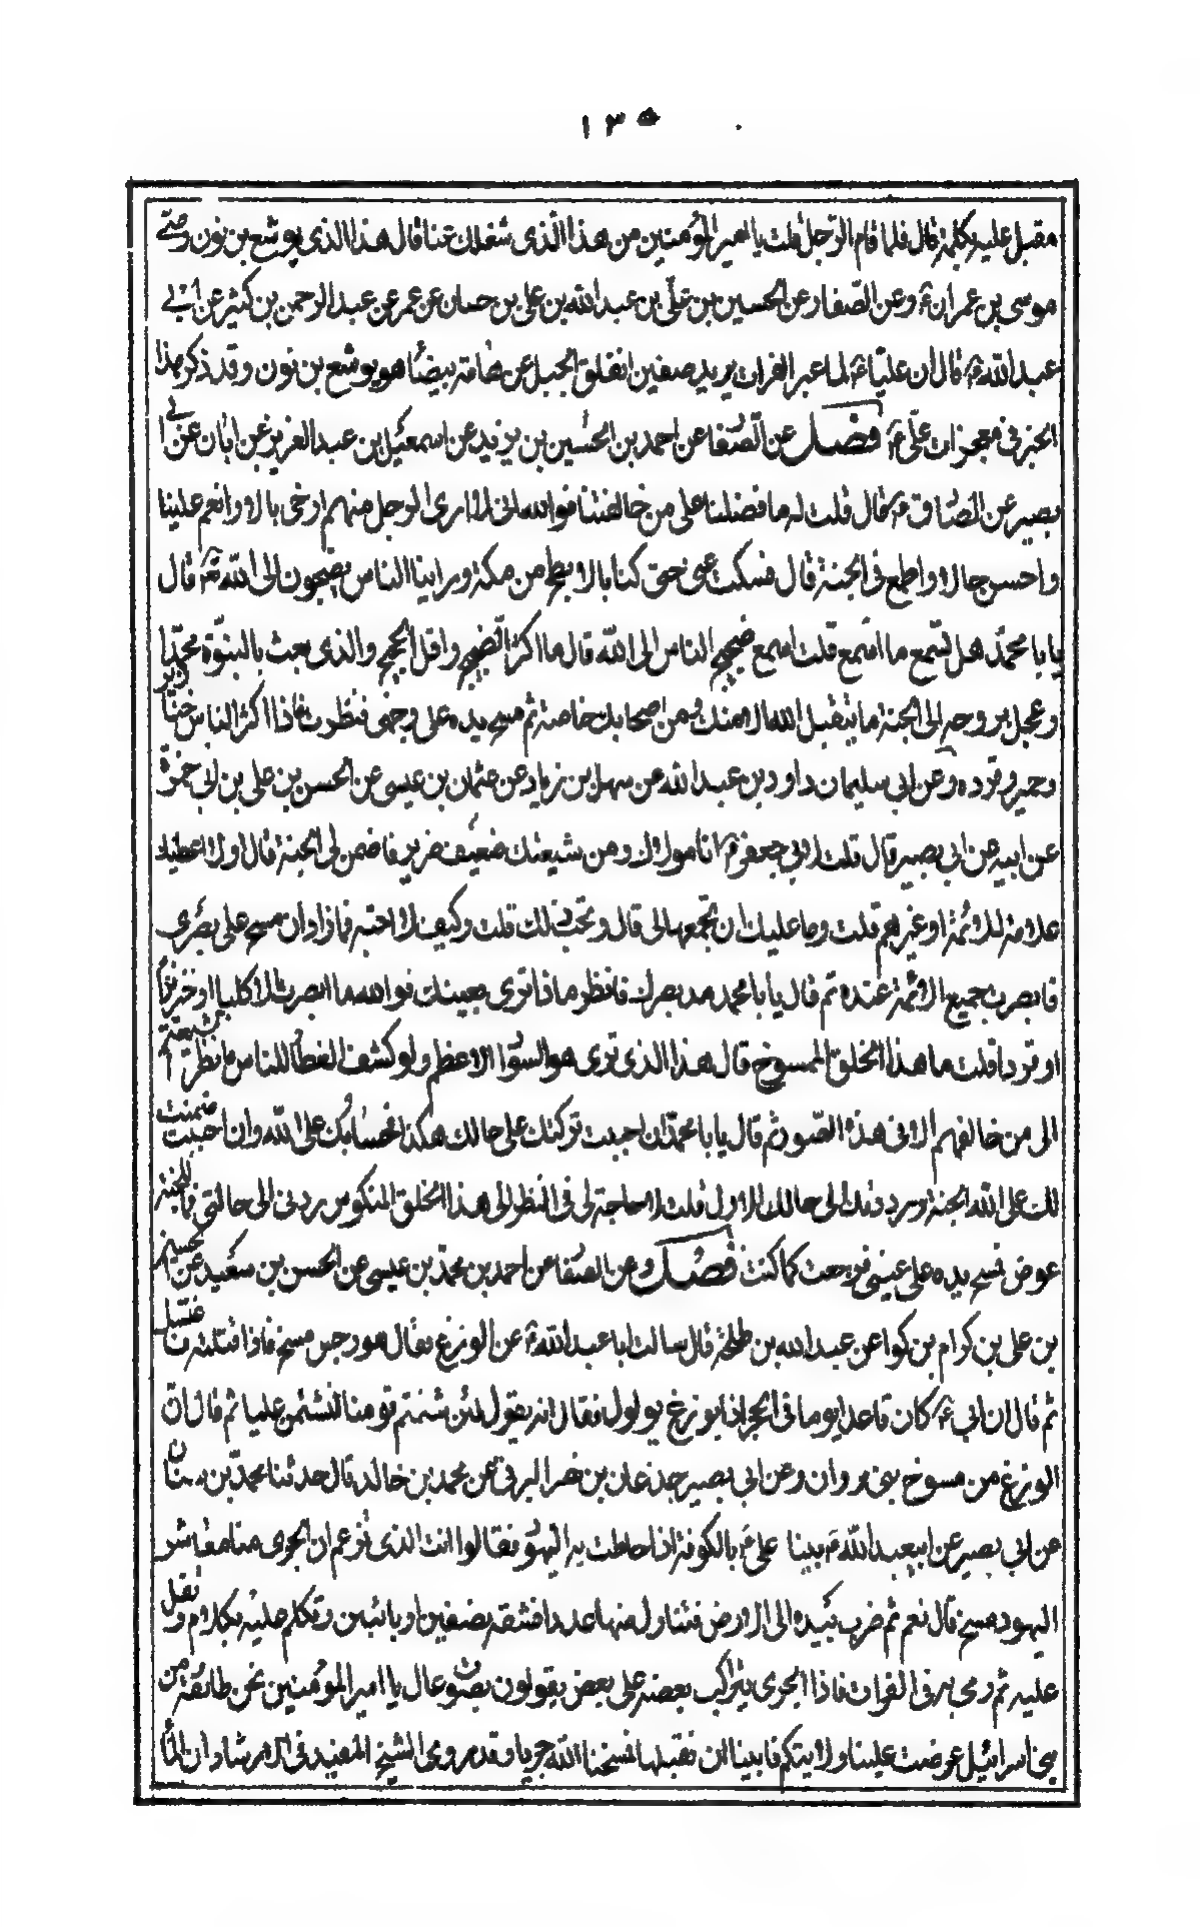 ١٣٥
مقبل عليه يكلمه قال فلما قام الرجل قلت يا امير المؤمنين من هذا الذى شغلك عنا قال هذا الذى يوشع بن نون وصى
موسى بن عمران ع وعن الصفار وعن الحسين بن على بن عبد الله بن على بن حسان عن عمر عن عبد الرحمن بن كثير عن ابى
عبد الله ع قال ان عليا ع لما عبر الفرات يريد صفين انفلق الجبل عن هامة بيضاء هو يوشع بن نون وقد ذكر هذا
الخبر فى معجزات على ع فصل عن الصفار عن احمد بن الحسين بن يزيد عن اسمعيل بن عبد العزيز عن ابان عن ابى
بصير عن الصادق ع قال قلت له ما فضلنا على من خالفنا فوالله انى لارى الرجل منهم ارخى بالا وانعم علينا
واحسن حالا واطمع فى الجنة قال فسكت عنى حتى كنا بالابطح من مكة وراينا الناس يضجون الى الله تع قال
يا با محمد هل تسمع ما اسمع قلت اسمع ضجيج الناس الى الله قال ما اكثر الضجيج واقل الحجيج والذى بعث بالنبوة محمدا
وعجل بروحه الى الجنة ما يتقبل الله الا منك ومن اصحابك خاصة ثم مسح يده على وجهى فنظرت فاذا اكثر الناس خنازير
وحمير وقردة وعن ابى سليمان داود بن عبد الله عن سهل بن زياد عن عثمان بن عيسى عن الحسن بن على بن ابى حمزة
عن ابيه عن ابى بصير قال قلت لابى جعفر ع انا مولاك ومن شيعتك ضعيف ضرير فاضمن لى الجنة قال اولا اعطيك
علامة للائمة او غيرهم قلت وما عليك ان تجمعها لى قال وتحب ذلك قلت وكيف لا احبه فما زاد ان مسح على بصرى
فابصرت جميع الائمة عنده ثم قال يا با محمد مد بصرك فانظر ماذا ترى بعينك فوالله ما ابصرت الا كلبا او خنزيرا
او قردا قلت ما هذا الخلق الممسوخ قال هذا الذى ترى هو السواد الاعظم ولو كشف الغطاء للناس ما نظر الشيعة
الى من خالفهم الا فى هذه الصور ثم قال يا با محمد ان احببت تركتك على حالك هكذا فحسابك على الله وان احببت ضمنت
لك على الله الجنة ورددتك الى حالك الاول قلت لا حاجة لى فى النظر الى هذا الخلق المنكوس ردنى الى حالتى فما للجنة
عوض فمسح يده على عينى فرجعت كما كنت فصل وعن الصفار عن احمد بن محمد بن عيسى عن الحسن بن سعيد عن الحسين
بن على بن كرام بن كوا عن عبد الله بن طلحة قال سالت ابا عبد الله ع عن الوزغ فقال هو رجس مسخ فاذا قتلته فاغتسل
ثم قال ان ابى ع كان قاعدا يوما فى الحجر اذا بوزغ يولول فقال انه يقول لئن شتمتم قومنا لنشتمن عليا ثم قال ان
الوزغ من مسوخ بنى مروان وعن ابى بصير جذعان بن نصر البرقى عن محمد بن خالد قال حدثنا محمد بن سنان
عن ابى بصير عن ابى عبد الله ع بينا على ع بالكوفة اذا حاطت به اليهود فقالوا انت الذى تزعم ان الجرى منا معاشر
اليهود مسخ قال نعم ثم ضرب بيده الى الارض فتناول منها عودا فشقه بنصفين او باثنين وتكلم عليه بكلام وتفل
عليه ثم رمى به فى الفرات فاذا الجرى يتراكب بعضه على بعض يقولون بصوت عال يا امير المؤمنين نحن طائفة من
بنى اسرائيل عرضت علينا ولايتكم فابينا ان نقبلها فمسخنا الله جريا وقد روى الشيخ المفيد فى الارشاد ان الما